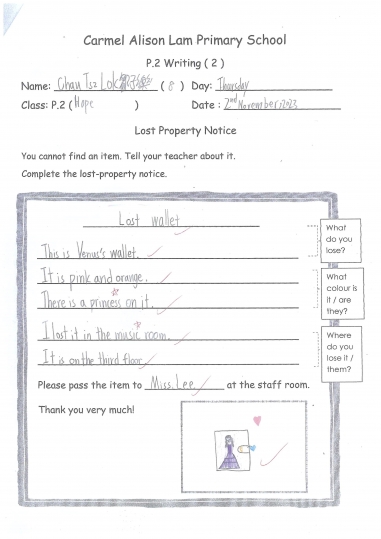 Carmel Alison Lam Primary School
P.2 Writing ( 2 )
Name: Chan Tsz Lok ( 8 ) Day: Thursday
Class: P.2 ( Hope ) Date : 2nd November, 2023
Lost Property Notice
You cannot find an item. Tell your teacher about it.
Complete the lost-property notice.
Lost wallet
This is Venus's wallet.
It is pink and orange.
There is a princess on it.
I lost it in the music room.
It is on the third floor.
Please pass the item to Miss. Lee at the staff room.
Thank you very much!
What
do you
lose?
What
colour is
it / are
they?
Where
do you
lose it /
them?